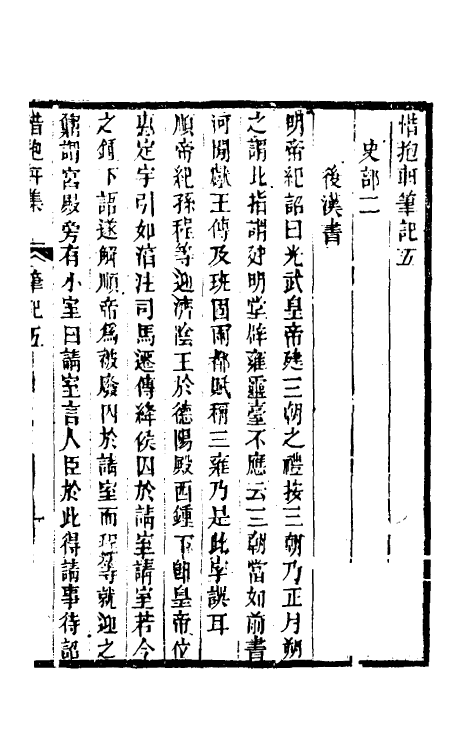 惜抱軒筆記五
史部二
後漢書
明帝紀詔曰光武皇帝建三朝之禮按三朝乃正月朔
之謂此指謂建明堂辟雍靈臺不應云三朝當如前書
河間獻王傳及班固兩都賦稱三雍乃是此字誤耳
順帝紀孫程等迎濟陰王於德陽殿西鍾下卽皇帝位
惠定宇引如淳注司馬遷傳絳侯囚於請室請室若今
之鍾下語遂解順帝爲被廢囚於請室而程等就迎之
鼐謂宮殿旁有小室曰請室言人臣於此得請事待詔
惜抱軒集 筆記五 一